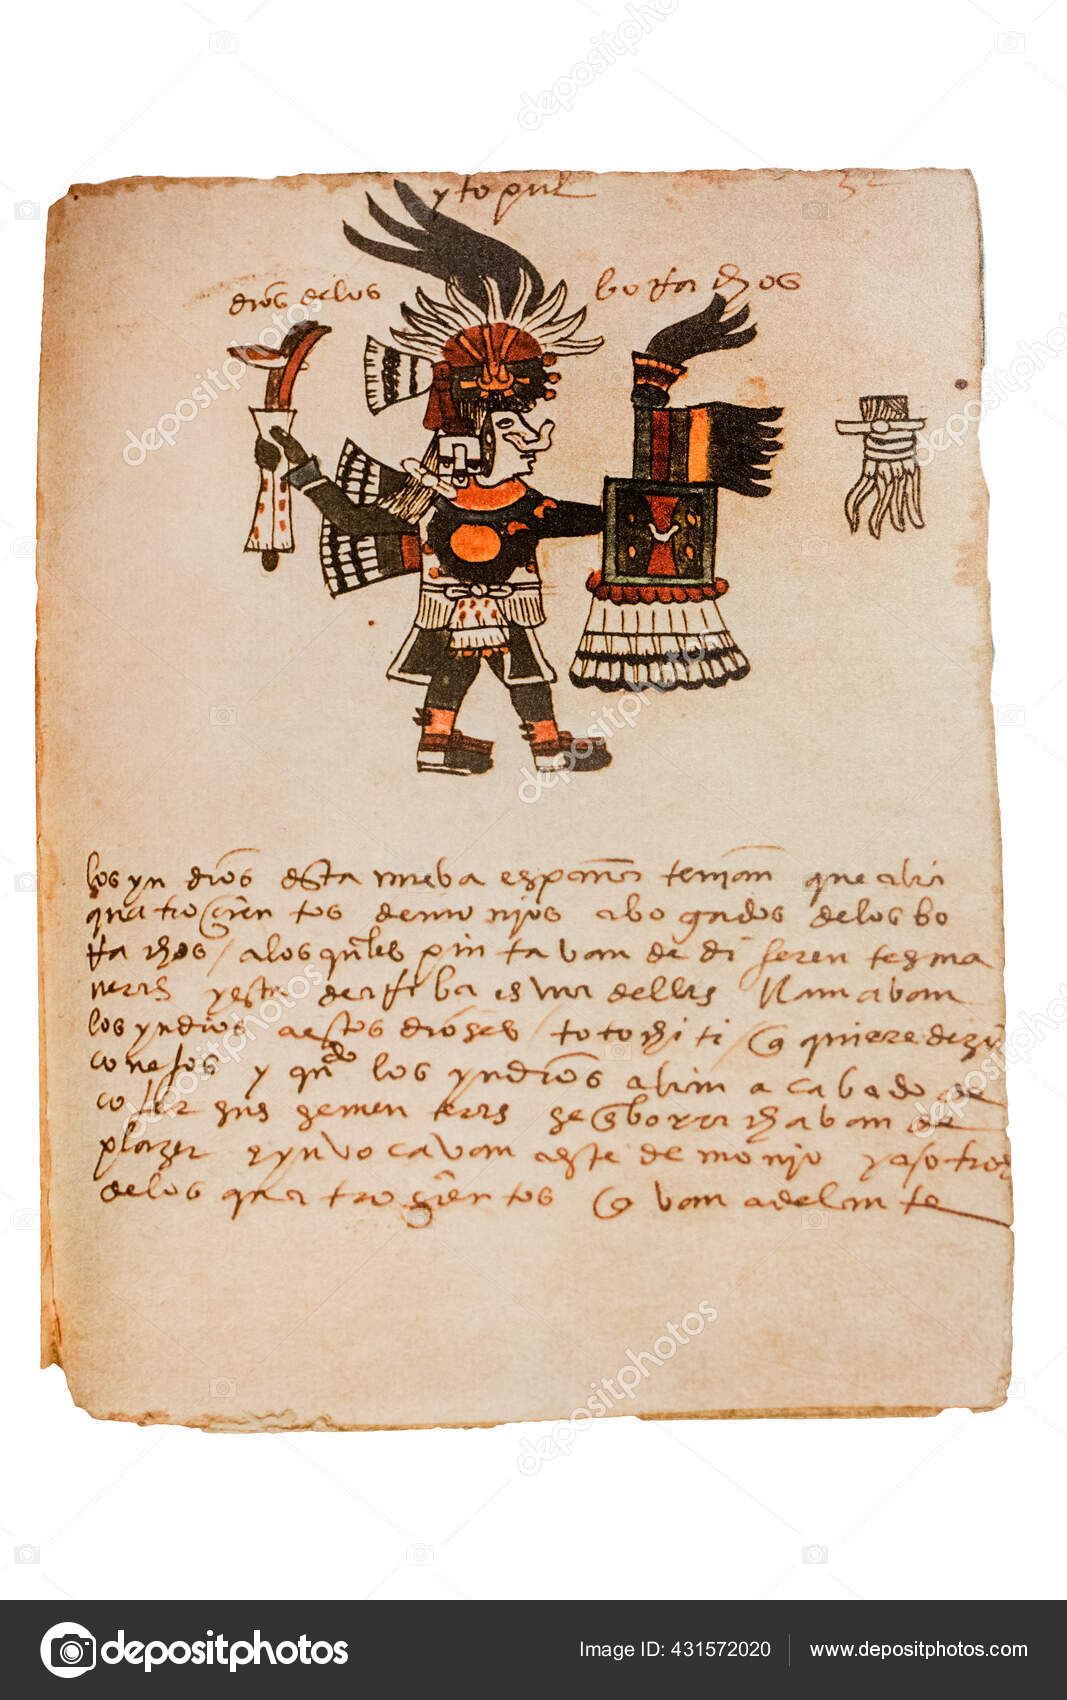 ytopul
32
dios delos borrachos
los yndios desta nueba españa tenian que abia
quatrocientos demonios abogados delos bo
rrachos / alos qules pintavan de diferentes ma
neras y esta de arriba es una dellas llamavan
los yndios a estos dioses / totochiti / q quiere dezir
conejos y qndo los yndios abian acabado de
cojer sus sementeras se enborrachavan de
plazer e ynvocavan a este demonio y a otros
delos quatrocientos q van adelante
depositphotos
Image ID: 431572020
www.depositphotos.com